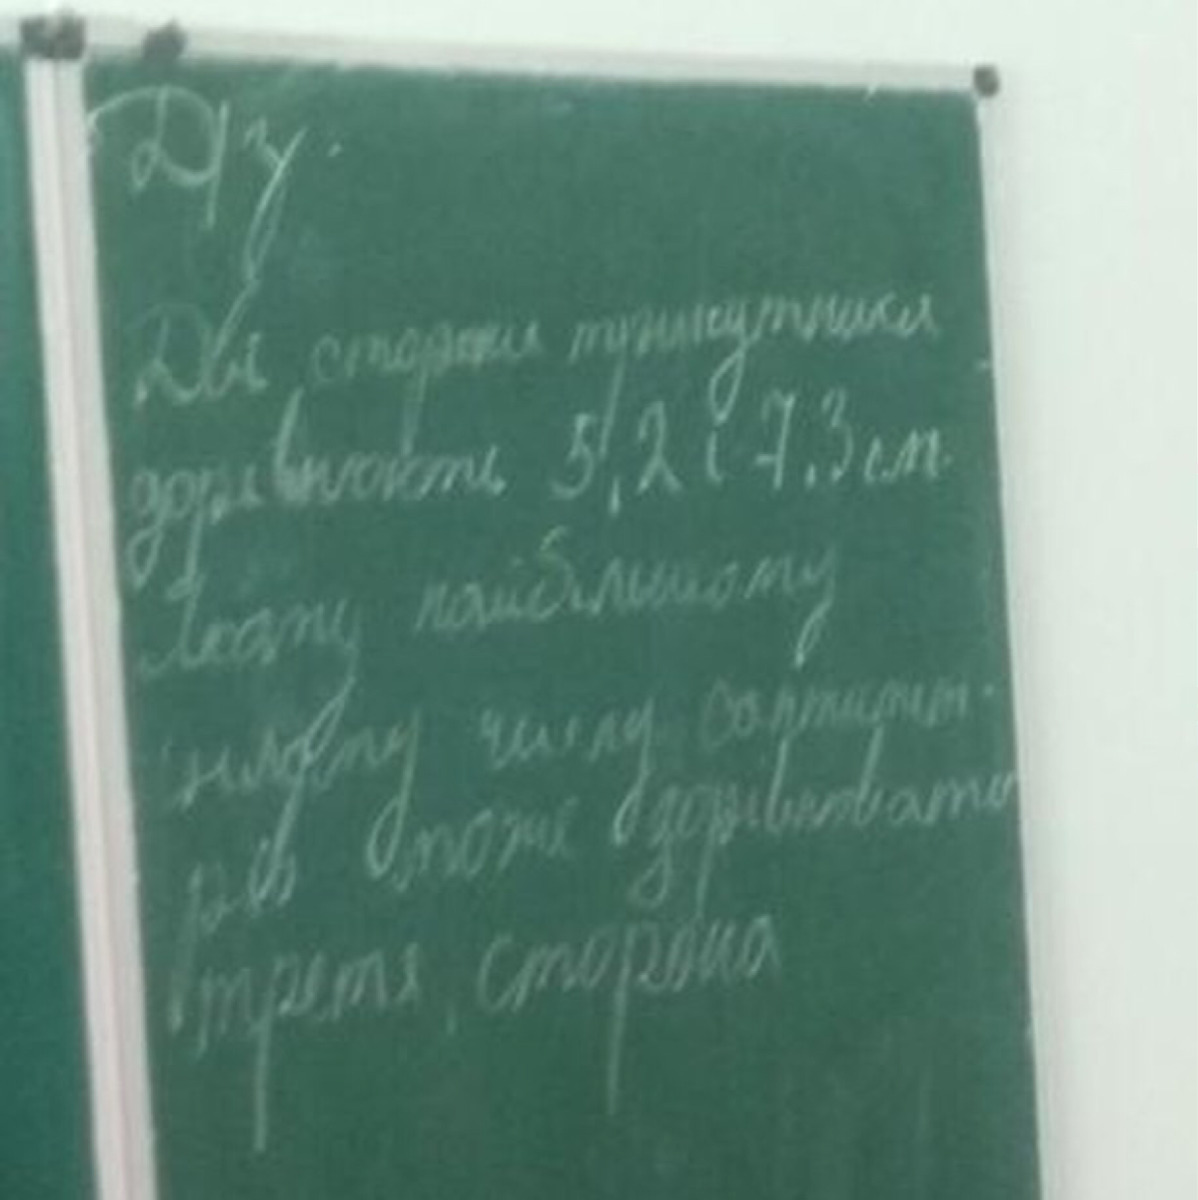 Д/з.
Дві сторони трикутника
дорівнюють 5,2 і 7.3 см.
Якому найбільшому
цілому числу сантимет-
рів може дорівнювати
третя сторона